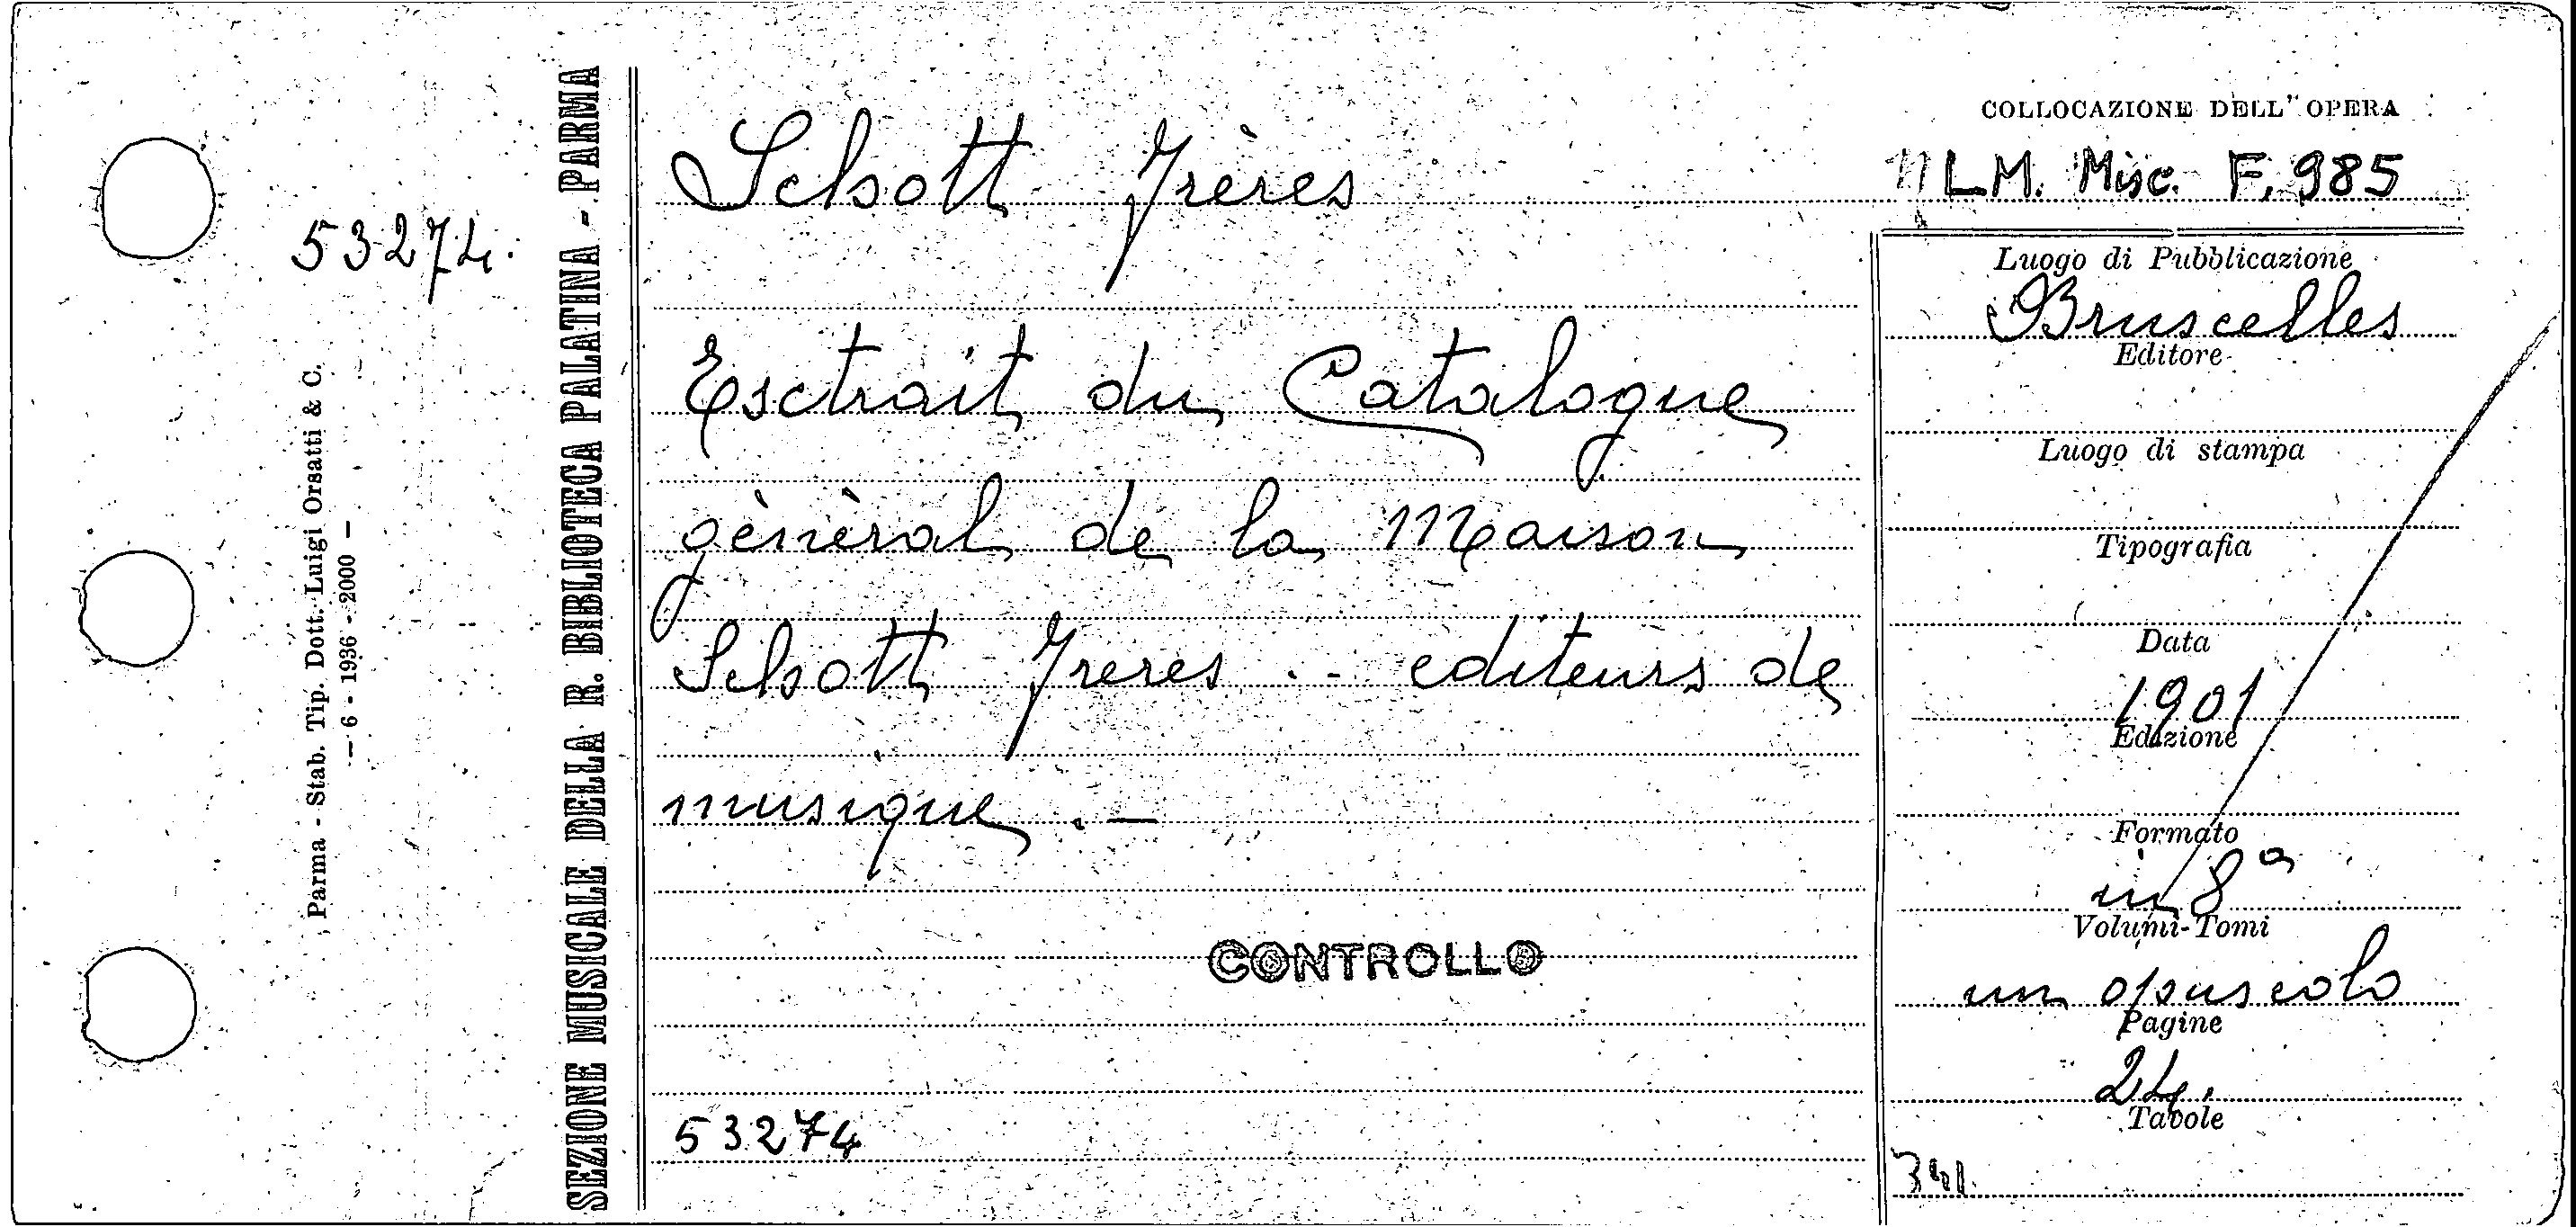 COLLOCAZIONE DELL' OPERA
LM. Misc. F. 985
53274.
Schott Frères
Esctrait du Catalogue
gènèral de la Maison
Schott Freres .- editeurs de
musique .-
CONTROLLO
53274
Luogo di Pubblicazione
Bruscelles
Editore
Luogo di stampa
Tipografia
Data
1901
Edizione
Formato
in 8º
Volumi-Tomi
un opuscolo
Pagine
24.
Tavole
341
SEZIONE MUSICALE DELLA R. BIBLIOTECA PALATINA - PARMA
Parma - Stab. Tip. Dott. Luigi Orsatti & C.
— 6 - 1936 - 2000 —